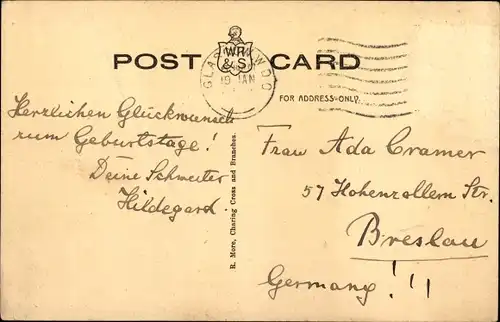 POST CARD
WR
&S
19 JAN
FOR ADDRESS ONLY.
Herzlichen Glückwunsch
zum Geburtstage!
Deine Schwester
Hildegard
R. More, Charing Cross and Branches.
Frau Ada Cramer
57 Hohenzollern Str.
Breslau
Germany!!!